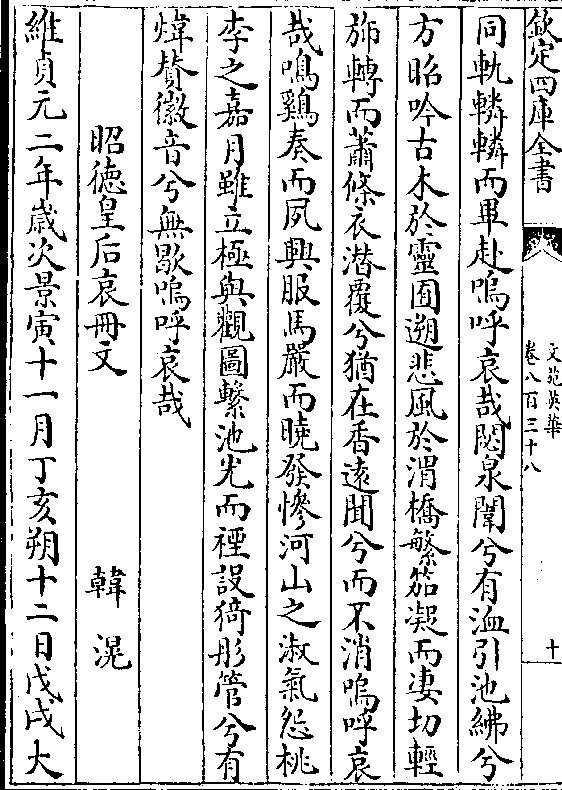 欽定四庫全書
文苑英華
卷八百三十八
十
同軌轔轔而畢赴嗚呼哀哉閟泉闈兮有洫引池紼兮
方昭吟古木於靈囿遡悲風於渭橋繁笳凝而淒切輕
斾轉而蕭條衣潛覆兮猶在香遠聞兮而不消嗚呼哀
哉鳴鷄奏而夙興服馬嚴而曉發慘河山之淑氣怨桃
李之嘉月雖立極與觀圖繫池光而禋設猗彤管兮有
煒賛徽音兮無歇嗚呼哀哉
昭徳皇后哀冊文 韓滉
維貞元二年歲次景寅十一月丁亥朔十二日戊戌大